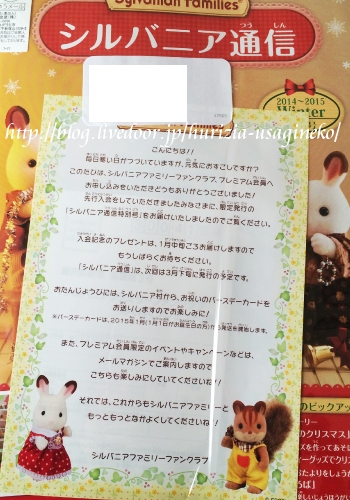 Sylvanian Families
シルバニア通信
つう しん
2014~2015
Winter
http://blog.livedoor.jp/hurizia-usagineko/
こんにちは!!
毎日寒い日がつづいていますが、元気におすごしですか?
このたびは、シルバニアファミリーファンクラブ、プレミアム会員へ
お申し込みをいただきどうもありがとうございました!
先行入会をしていただきましたみなさまに、限定発行の
「シルバニア通信特別号」をお届けいたしましたのでご覧ください。
入会記念のプレゼントは、1月中旬ごろお届けしますので
もうしばらくお待ちください。
「シルバニア通信」は、次回は3月下旬に発行の予定です。
おたんじょうびには、シルバニア村から、お祝いのバースデーカードを
お送りしますのでお楽しみに!
※バースデーカードは、2015年1月(1月1日がお誕生日の方)から発送を開始します。
また、プレミアム会員限定のイベントやキャンペーンなどは、
メールマガジンでご案内しますので
こちらも楽しみにしていてくださいね!
それでは、これからもシルバニアファミリーと
もっともっとなかよくしてくださいね!
シルバニアファミリーファンクラブ
のピックアッ
のクリスマス」